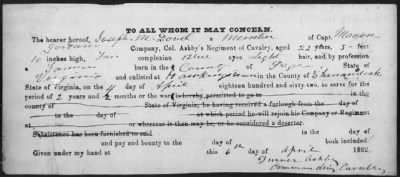 TO ALL WHOM IT MAY CONCERN.
The bearer hereof, Joseph M. Doud a Member of Capt. Macon
Jordain Company, Col. Ashby's Regiment of Cavalry, aged 22 years, 5 feet
10 inches high, Fair complexion Blue eyes Light hair, and by profession
a Farmer born in the County of Page, State of
Virginia and enlisted at Hawkinstown in County of Shenandoah
State of Virginia, on the 4 day of April eighteen hundred and sixty-two, to serve for the
period of 2 years and ½ months or the war is hereby permitted to go to
county of State of Virginia, he having received a furlough from the day of
to the day of at which period he will rejoin his Company or Regiment
at or wherever it then may be, or be considered a deserter.
Subsistence has been furnished to said to the day of
and pay and bounty to the day of both included
Given under my hand at this 6th day of April 1862.
Turner Ashby
Commanding Cavalry